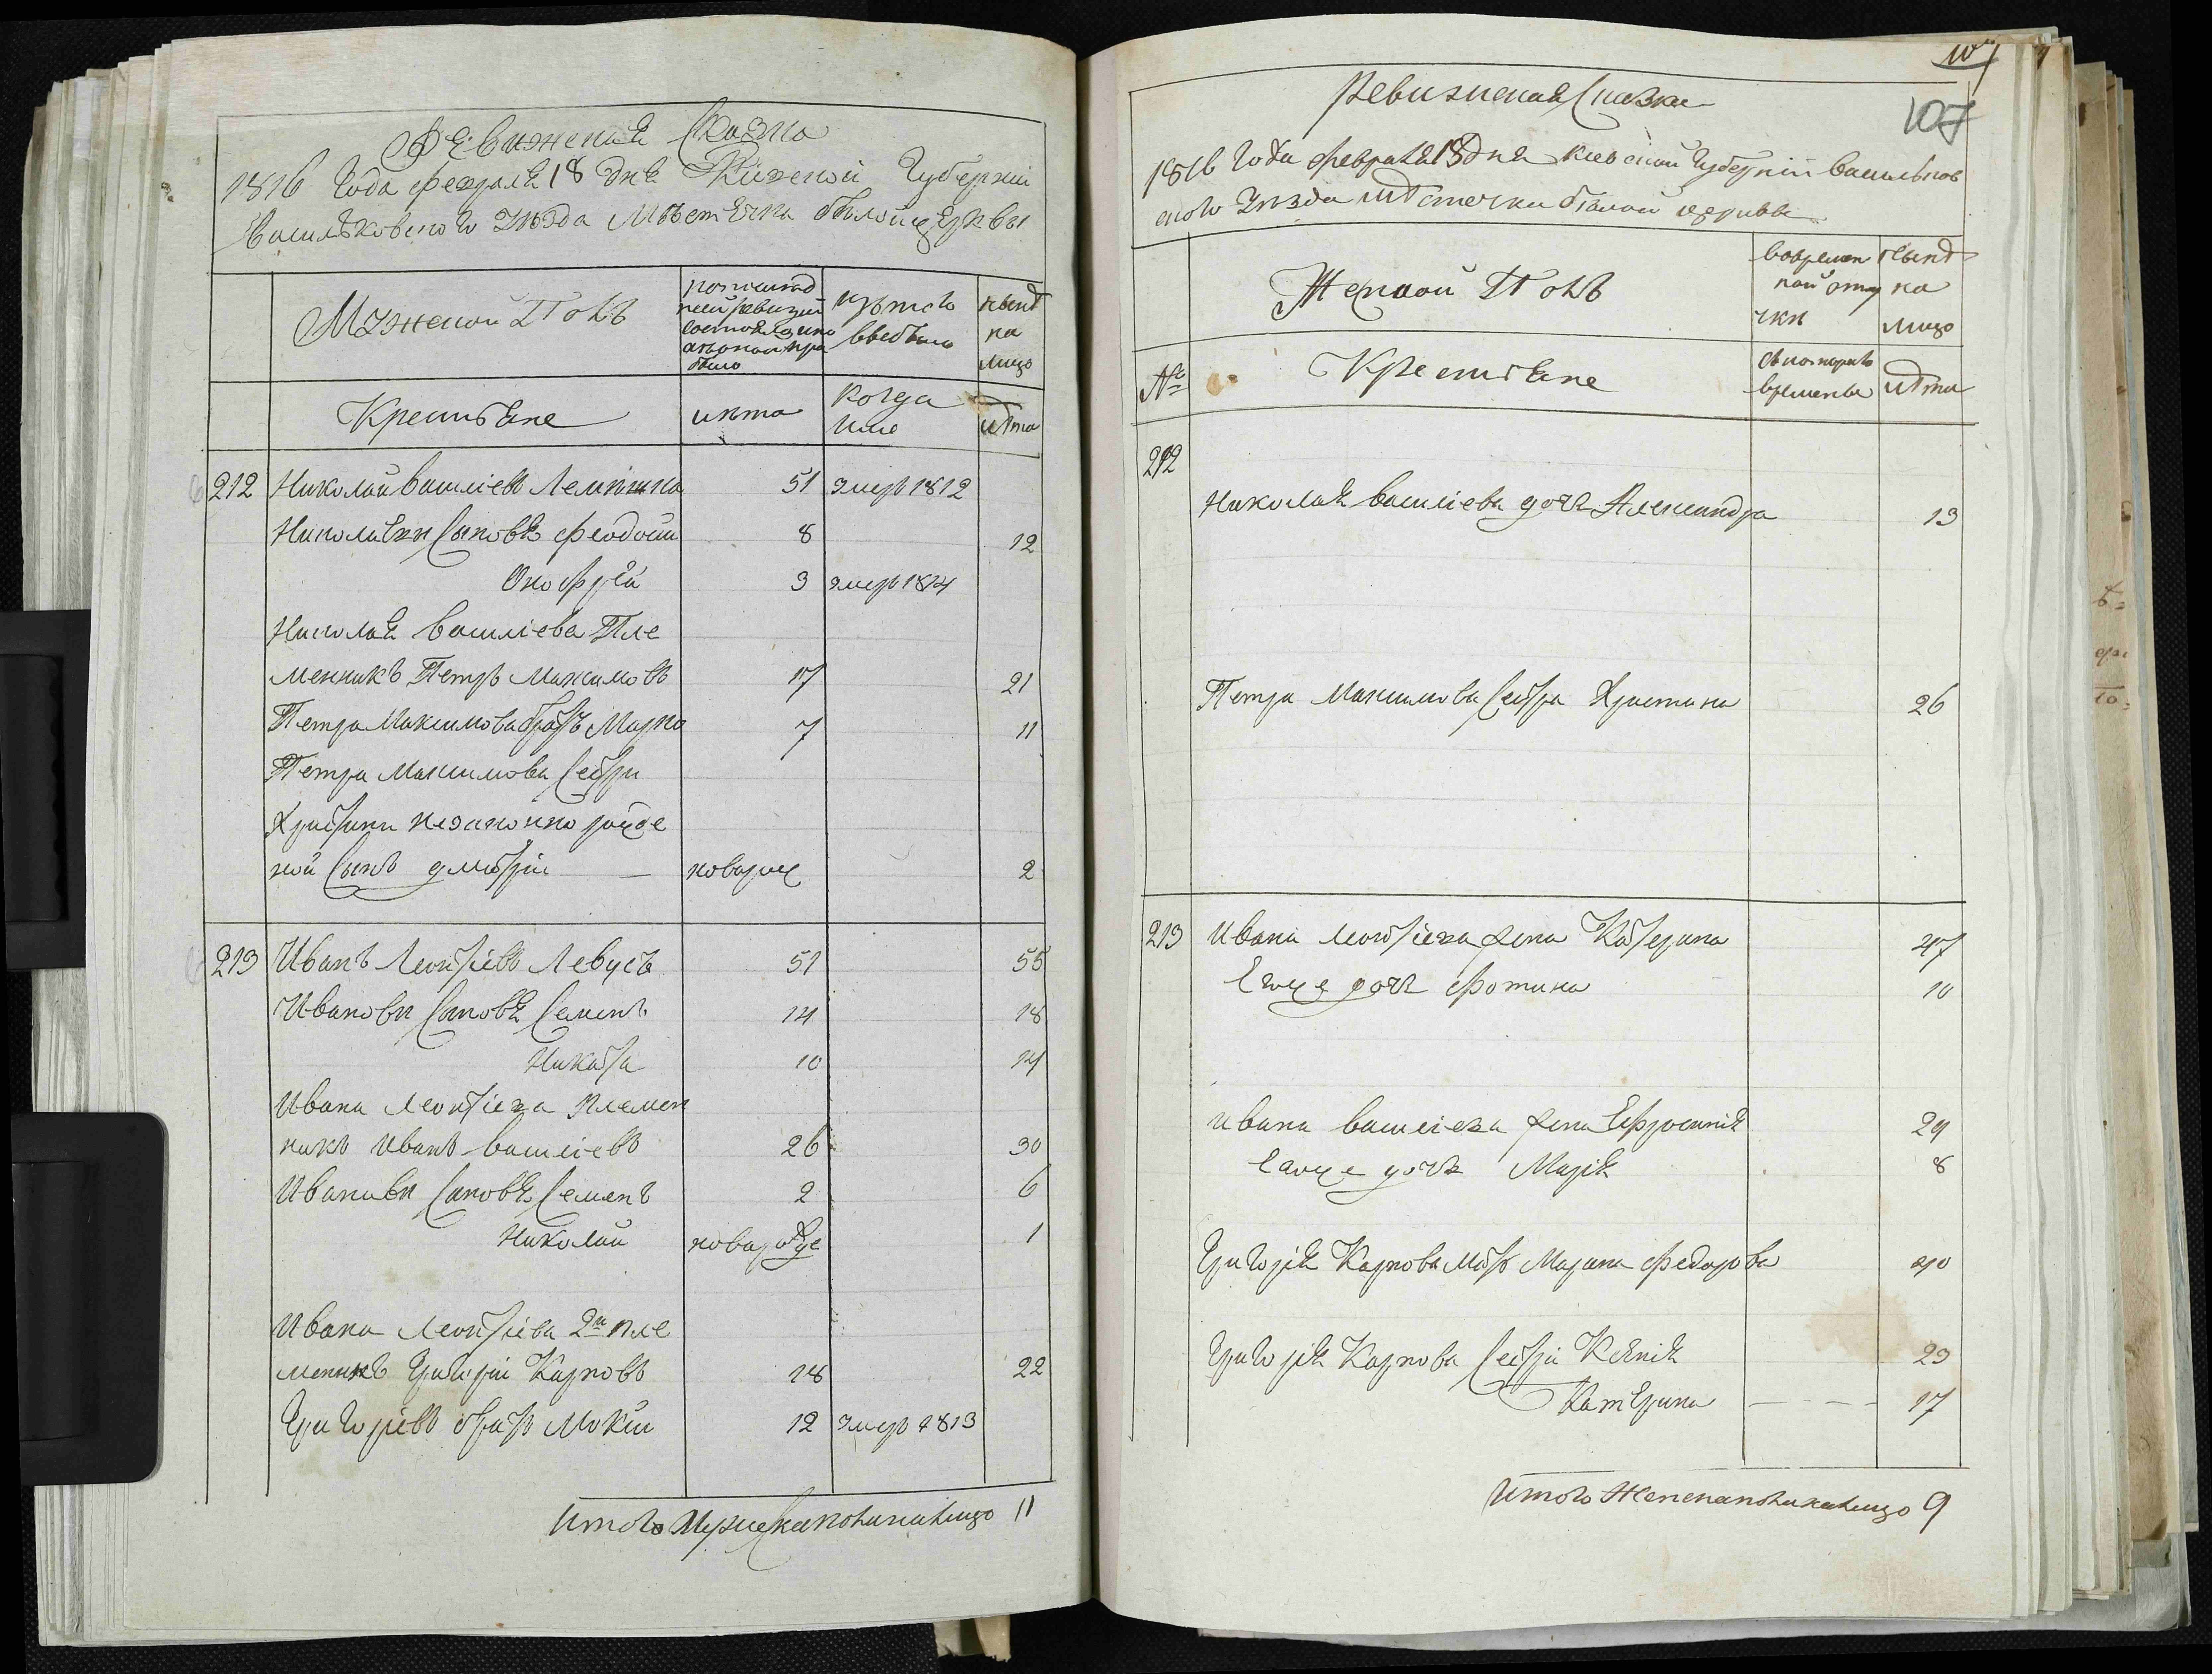 Ревизская Сказка
1816 Года февраля 18 дня Кіевской Губерніи
Васильковского Уезда Местечка белойцеркви
Мужеской Полъ
по последней ревизіи состояло и после оной прибыло
изъ того выбыло
ныне на лицо
Крестьяне
лета
когда
лета
212 Николай василіевъ 51 умеръ 1812
Николаевы Сыновья феодосій 8 12
Онофрѣй 3 умеръ 1814
Николая василіева Пле
менникъ Петръ Максимовъ 17 21
Петра Максимова братъ Марко 7 11
Петра Максимова Сестры
Христины незаконно рожде
ной Сынъ дмитрій — новорож 2
213 Иванъ Леонтіевъ Левусъ 51 55
Ивановы Сыновья Семенъ 14 18
Никита 10 14
Ивана Леонтіева племен
никъ Иванъ василіевъ 26 30
Ивановы Сыновья Семенъ 2 6
Николай новорожде 1
Ивана Леонтіева 2й пле
менникъ Григорій Карповъ 18 22
Григоріевъ братъ Мокій 12 умеръ 1813
Итого Мужеска пола на лицо 11
107
107
Ревизская Сказка
1816 Года февраля 18 дня киевской губерніи васильков
ского Уезда местечка белой церквы
Женской Полъ
вовремен
ной отлу
чки
ныне
на
лицо
№
Крестьяне
съ которого
времени
лета
212
Николая василіева дочь Александра 13
Петра Максимова Сестра Христина 26
213 Ивана Леонтіева жена Катерина 47
Егоже дочь Фотина 10
Ивана василіева жена Ефросинія 29
Егоже дочь Марія 8
Григорія Карпова Мать Марина федорова 40
Григорія Карпова Сестры Ксенія 23
Катерина - - - - 17
Итого Женска пола на лицо 9